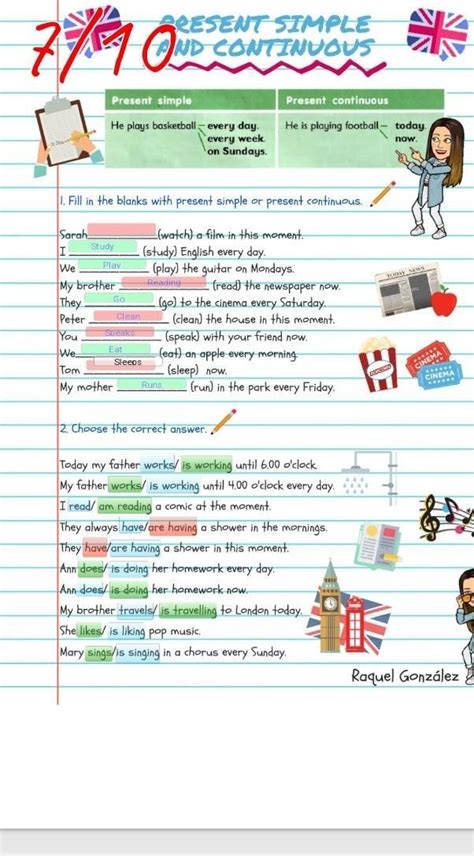 7/10
PRESENT SIMPLE
AND CONTINUOUS
Present simple Present continuous
He plays basketball every day. He is playing football today.
every week. now.
on Sundays.
1. Fill in the blanks with present simple or present continuous.
Sarah (watch) a film in this moment.
I Study (study) English every day.
We Play (play) the guitar on Mondays.
My brother Reading (read) the newspaper now.
They Go (go) to the cinema every Saturday.
Peter Clean (clean) the house in this moment.
You Speaks (speak) with your friend now.
We Eat (eat) an apple every morning.
Tom Sleeps (sleep) now.
My mother Runs (run) in the park every Friday.
TODAY NEWS
POPCORN
CINEMA
CINEMA
2. Choose the correct answer.
Today my father works/ is working until 6.00 o'clock.
My father works/ is working until 4.00 o'clock every day.
I read/ am reading a comic at the moment.
They always have/are having a shower in the mornings.
They have/are having a shower in this moment.
Ann does/ is doing her homework every day.
Ann does/ is doing her homework now.
My brother travels/ is travelling to London today.
She likes/ is liking pop music.
Mary sings/is singing in a chorus every Sunday.
Raquel González